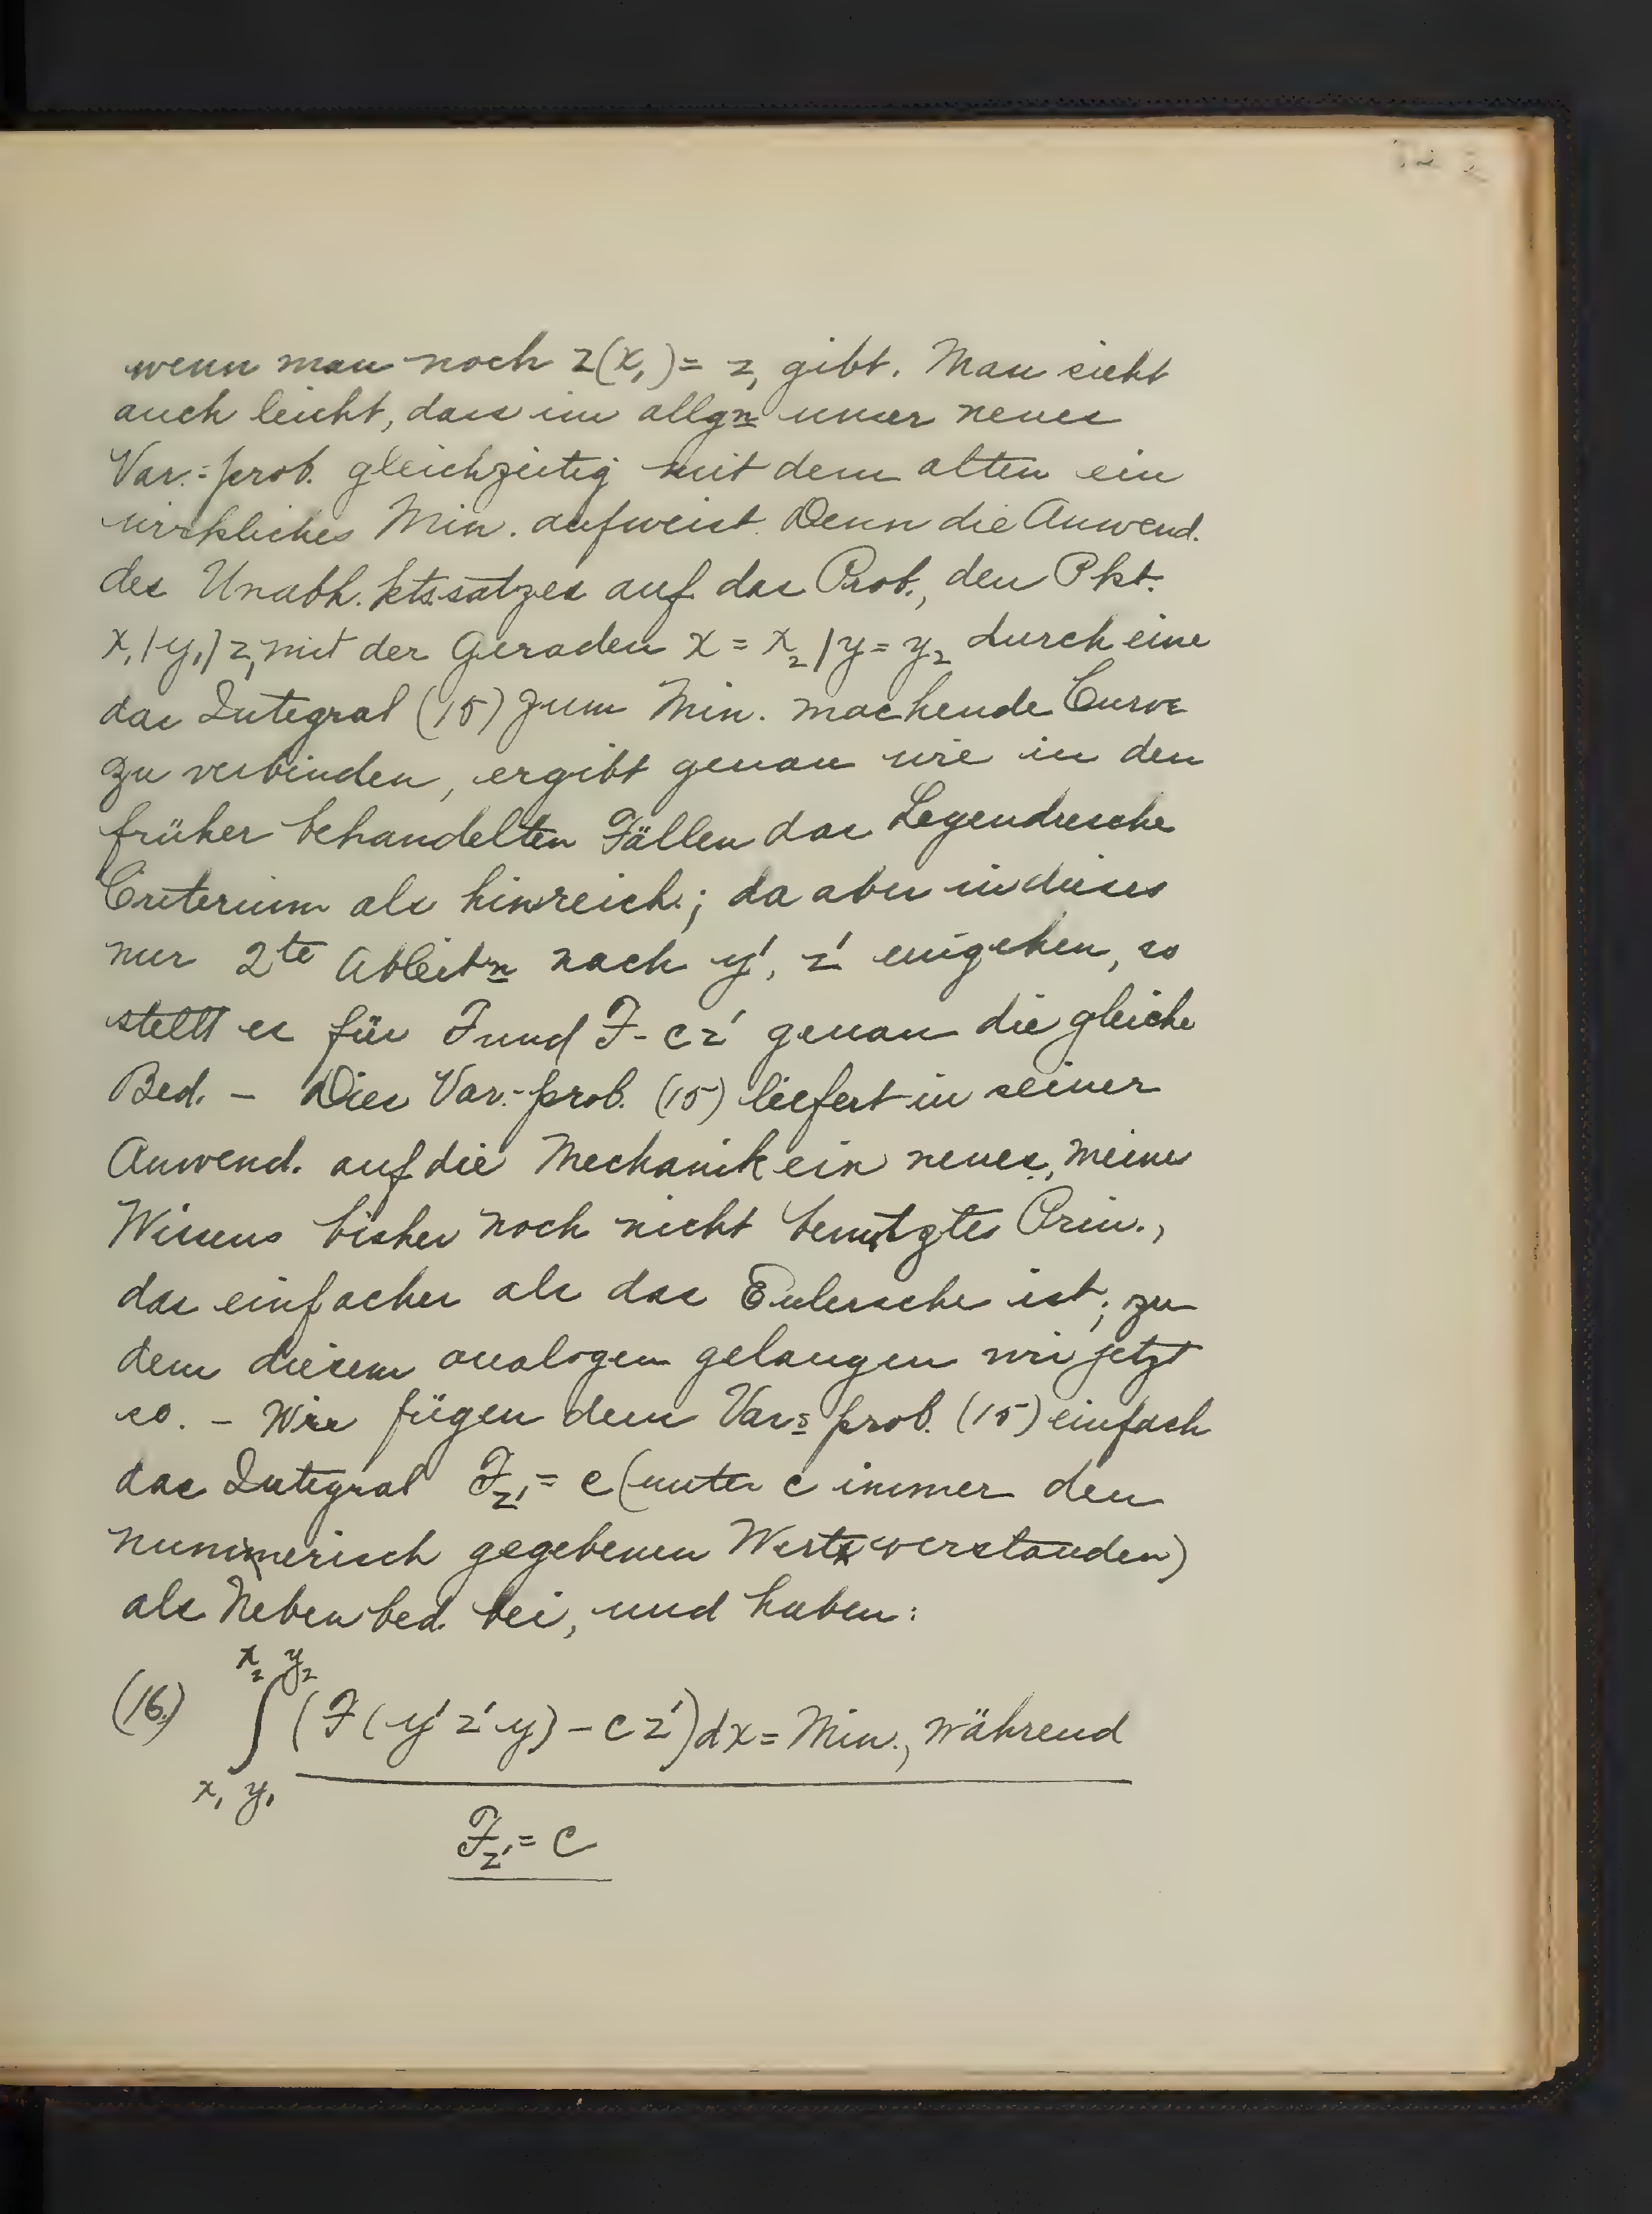 wenn man noch z(x₁) = z₁ gibt. Man sieht
auch leicht, dass im allgn unser neues
Var.-prob. gleichzeitig mit dem alten ein
wirkliches Min. aufweist. Denn die Anwend.
des Unabh.ktssatzes auf das Prob., den Pkt.
x₁|y₁|z₁ mit der Geraden x = x₂|y = y₂ durch eine
das Integral (15) zum Min. machende Curve
zu verbinden, ergibt genau wie in den
früher behandelten Fällen das Legendresche
Criterium als hinreich.; da aber in dieses
nur 2te Ableitn nach y', z' eingehen, so
stellt es für F und F - cz' genau die gleiche
Bed. – Dies Var.-prob. (15) liefert in seiner
Anwend. auf die Mechanik ein neues, meines
Wissens bisher noch nicht benutztes Prin.,
das einfacher als das Eulersche ist; zu
dem diesem analogen gelangen wir jetzt
so. – Wir fügen dem Var=prob. (15) einfach
das Integral F_z' = c (unter c immer den
nummerisch gegebenen Wert verstanden)
als Nebenbed. bei, und haben:
x₂ y₂
(16.) ∫ (F(y' z' y) - c z') dx = Min., während
x₁ y₁
F_z' = c